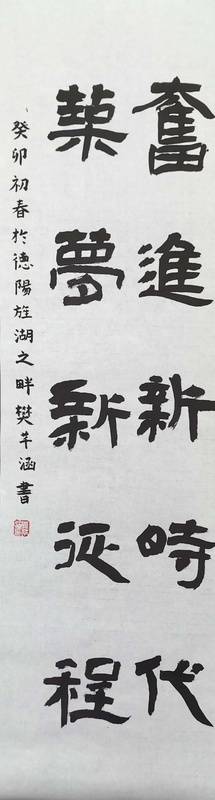 奮進新時代
築夢新征程
癸卯初春於德陽旌湖之畔樊芊涵書